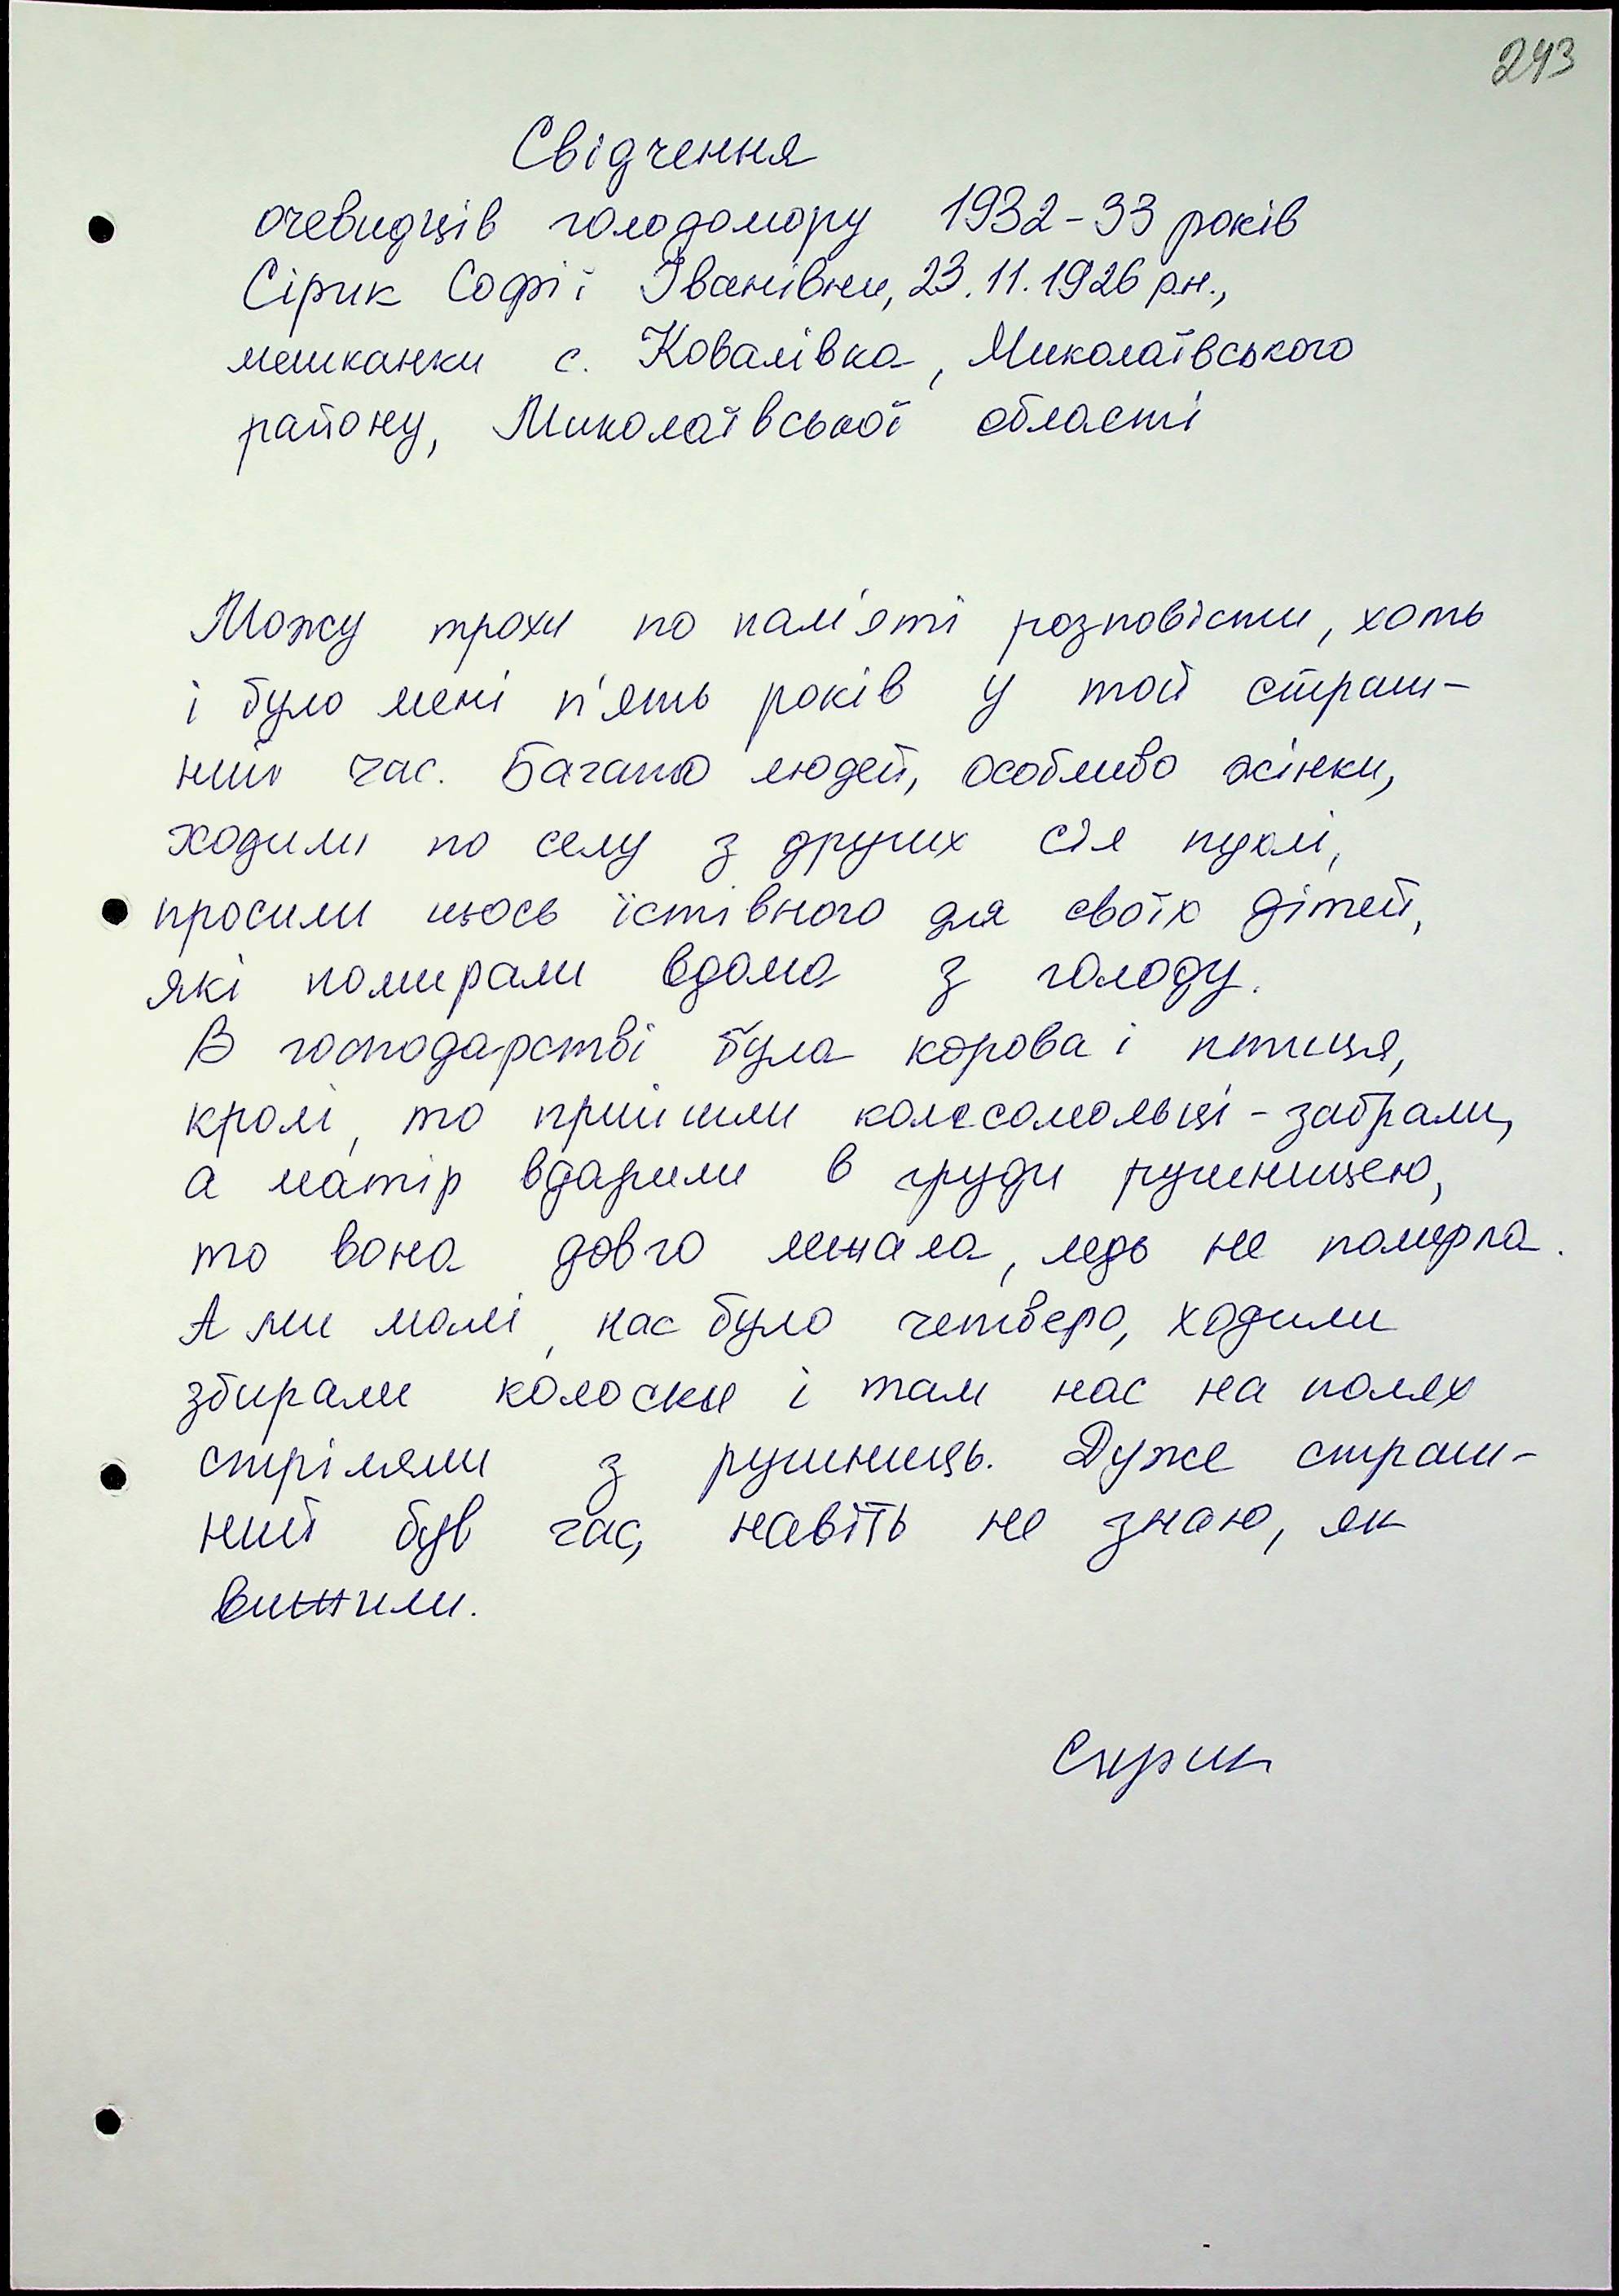 243
Свідчення
очевидців голодомору 1932-33 років
Сірик Софії Іванівни, 23.11.1926 р.н.,
мешканки с. Ковалівка, Миколаївського
району, Миколаївської області
Можу трохи по пам'яті розповісти, хоть
і було мені п'ять років у той страш-
ний час. Багато людей, особливо жінки,
ходили по селу з других сіл пухлі,
просили щось їстівного для своїх дітей,
які помирали вдома з голоду.
В господарстві була корова і птиця,
кролі, то прийшли комсомольці - забрали,
а матір вдарили в груди рушницею,
то вона довго лежала, ледь не померла.
А ми малі, нас було четверо, ходили
збирали колоски і там нас на полях
стріляли з рушниць. Дуже страш-
ний був час, навіть не знаю, як
вижили.
Сирик